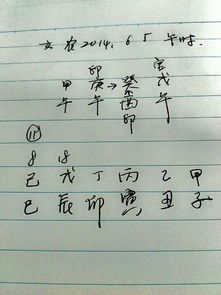 女农2014.6 5 午时.
卯 寅
甲 庚→癸 戊
午 午 酉 午
卯
⑪
8 18
己 戊 丁 丙 乙 甲
巳 辰 卯 寅 丑 子